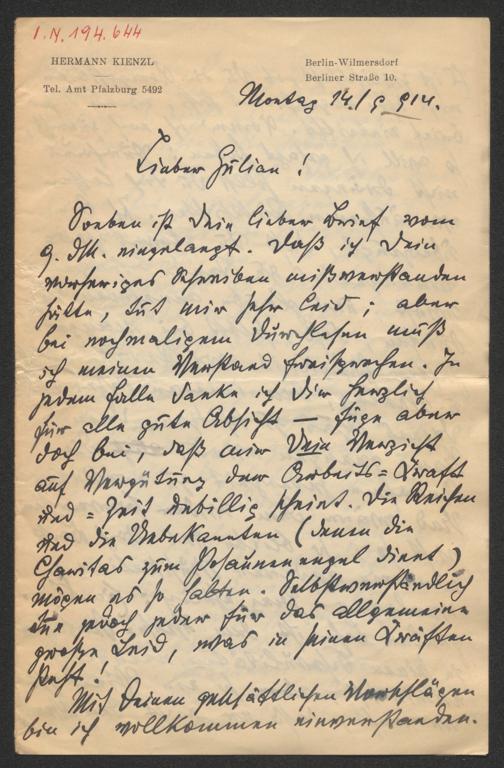 I.N. 194.644
HERMANN KIENZL
Tel. Amt Pfalzburg 5492
Berlin-Wilmersdorf
Berliner Straße 10.
Montag 14./9. 914.
Lieber Gülian!
Soeben ist Dein lieber Brief vom
9. dM. eingelangt. Daß ich Dein
vorheriges Schreiben mißverstanden
hätte, tut mir sehr leid; aber
bei nochmaligem Durchlesen muß
ich meinen Verstand freisprechen. In
jedem Falle danke ich Dir herzlich
für alle gute Absicht — füge aber
doch bei, daß mir Dein Verzicht
auf Vergütung der Arbeits=Kraft
und =Zeit unbillig scheint. Die Reichen
und die Unbekannten (denen die
Charitas zum Posaunenengel dient)
mögen es so halten. Selbstverständlich
tue jedoch jeder für das allgemeine
große Leid, was in seinen Kräften
steht!
Mit Deinen geschäftlichen Vorschlägen
bin ich vollkommen einverstanden.